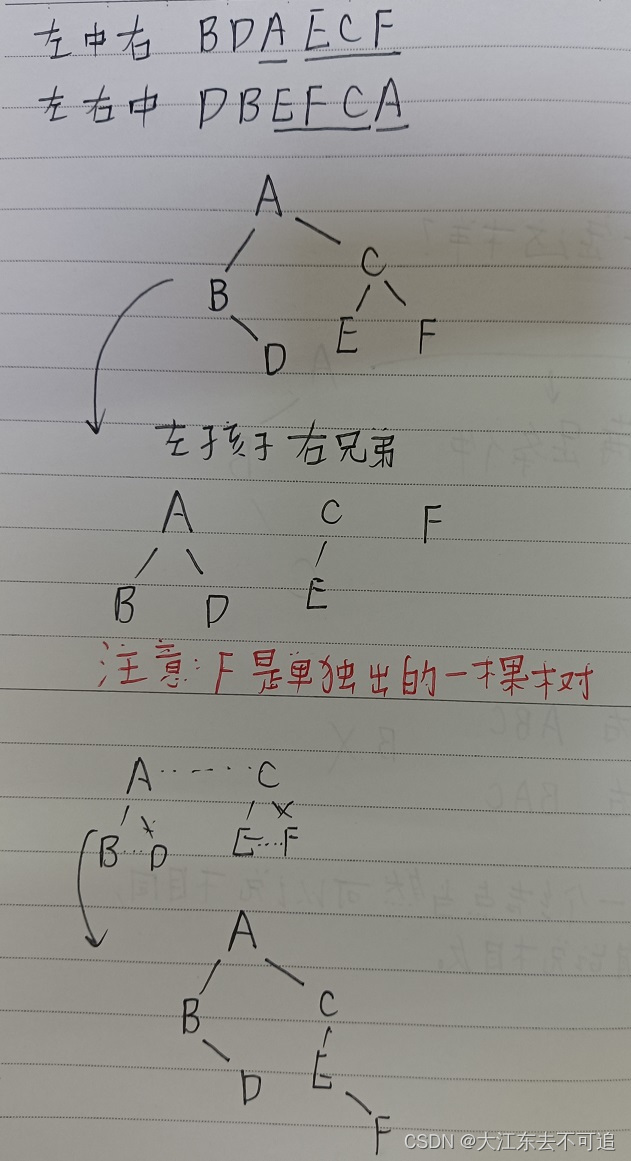 左中右 BDAECF
左右中 DBEFCA
A
B C
D E F
左孩子右兄弟
A C F
B D E
注意:F是单独出的一棵树对
A C
B D E F
A
B C
D E
F
CSDN @大江东去不可追